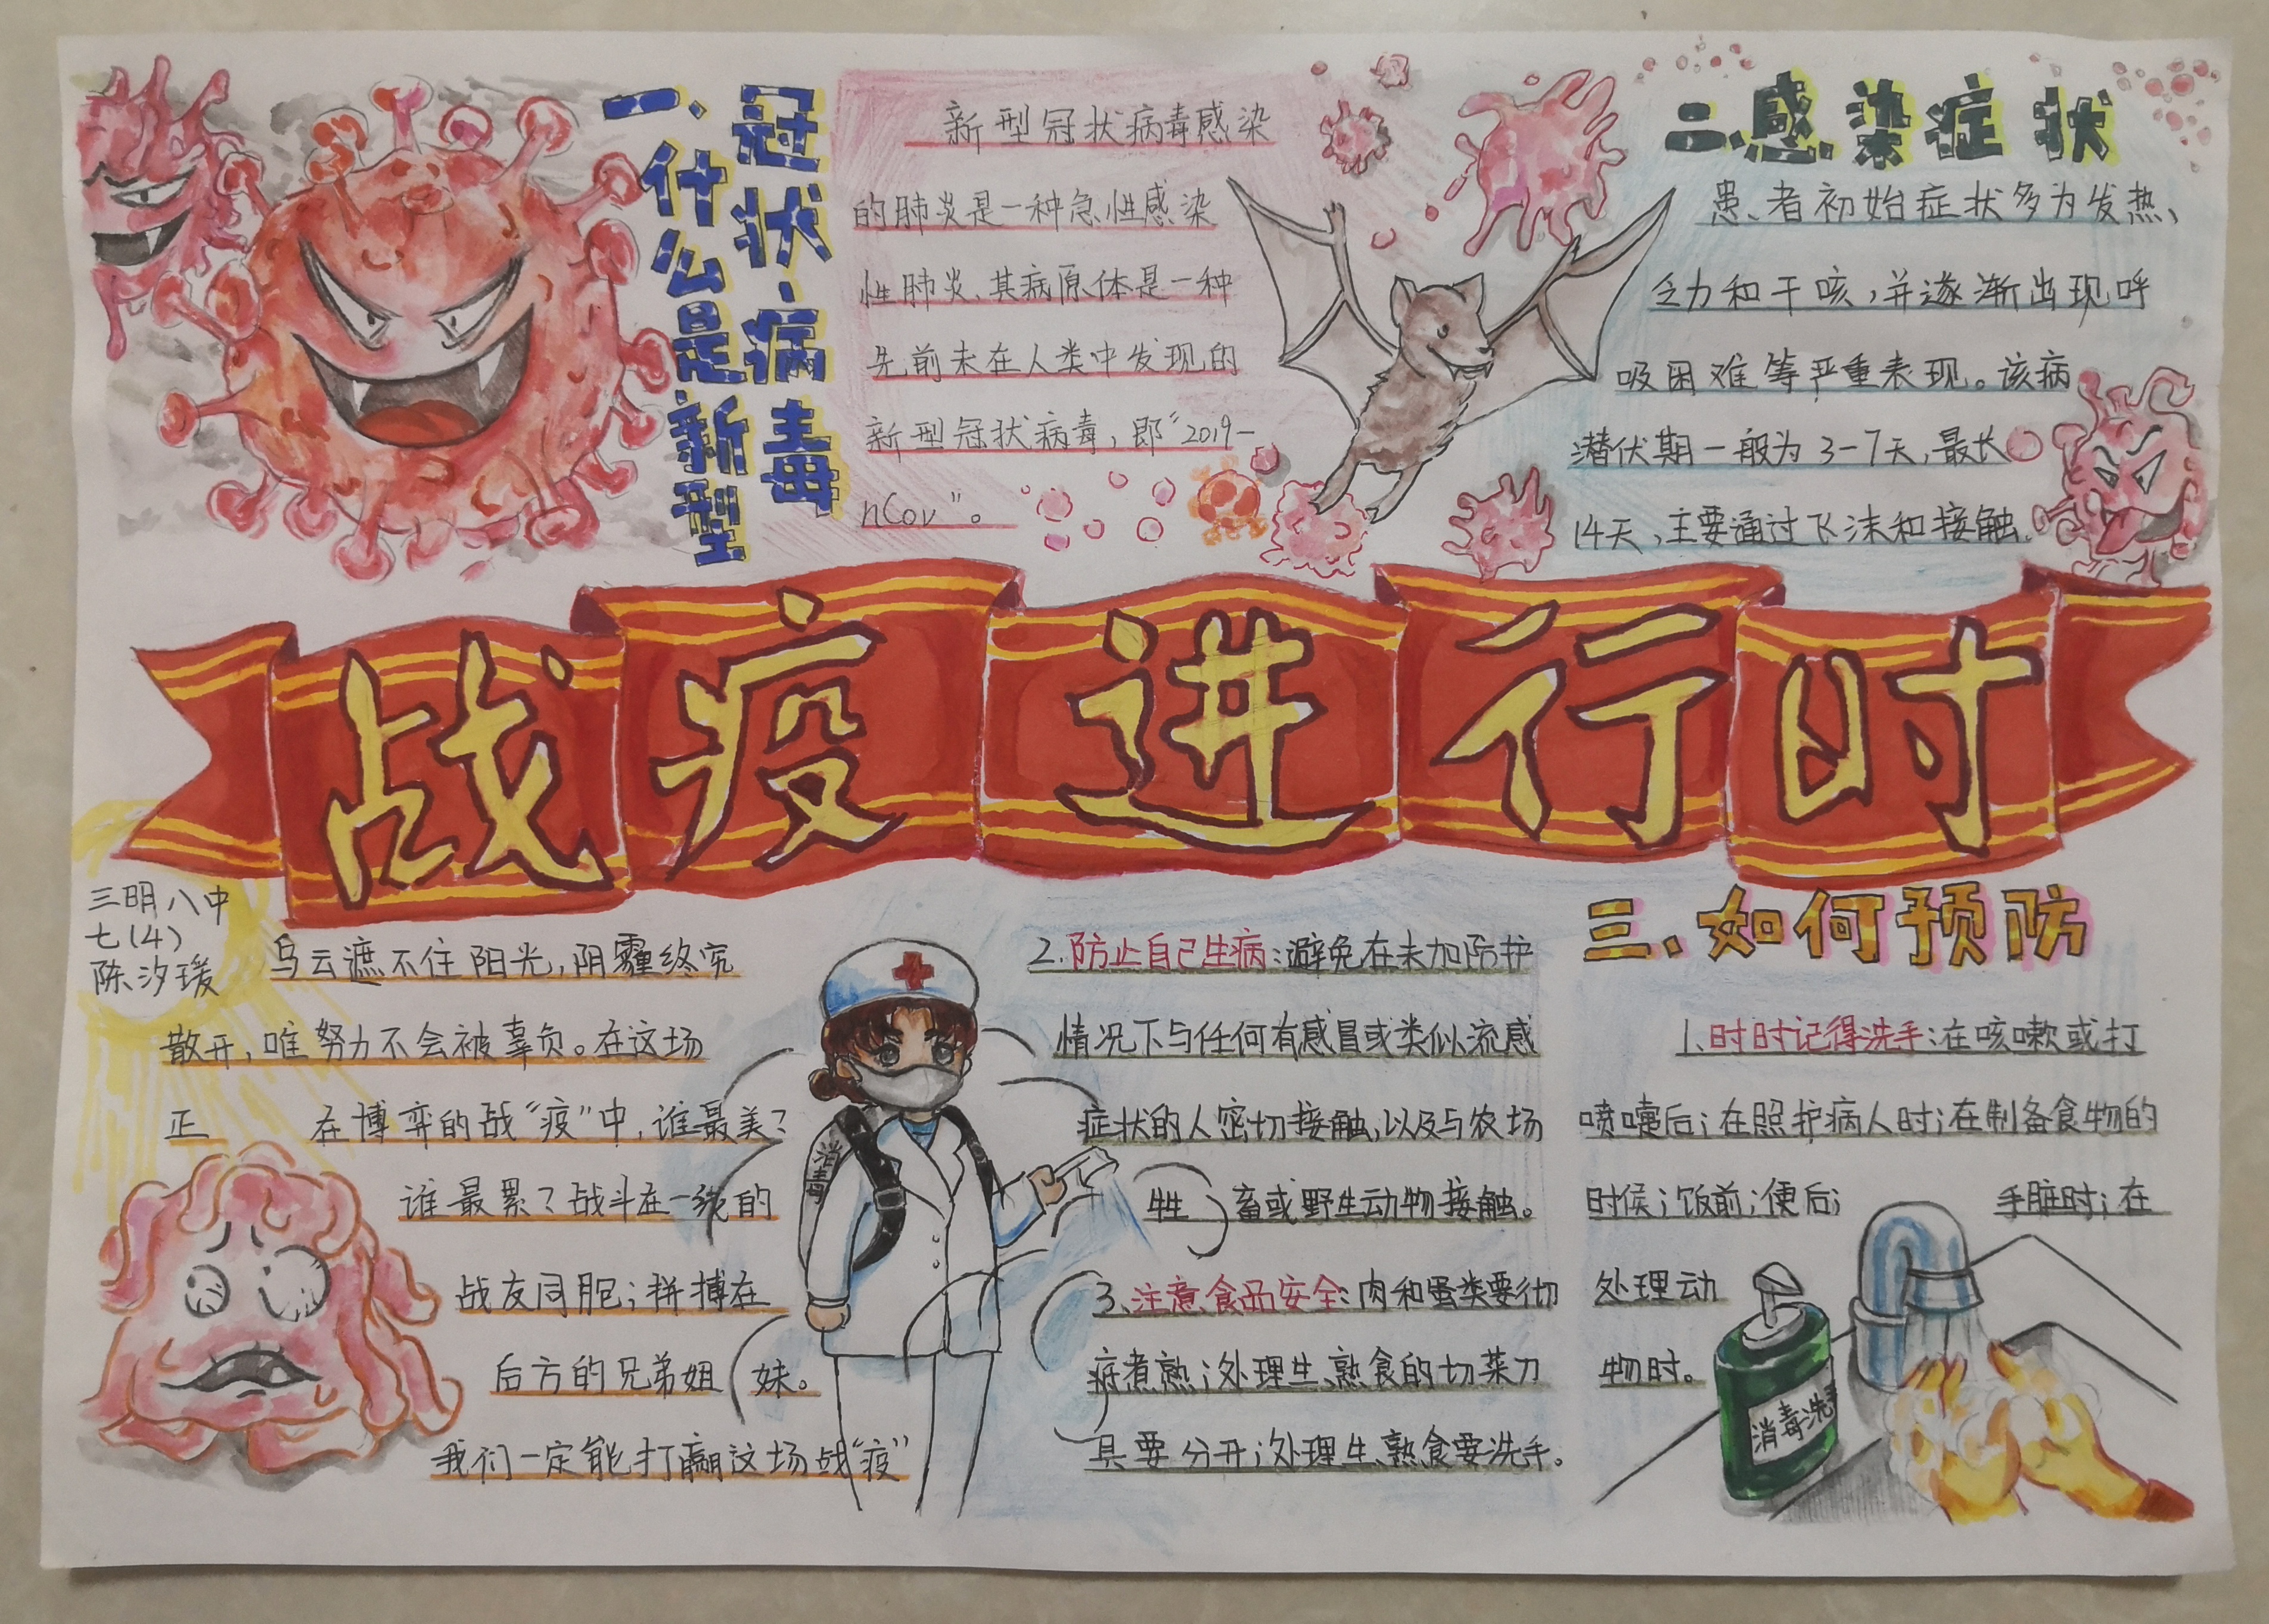 一、什么是新型
冠状病毒
新型冠状病毒感染
的肺炎是一种急性感染
性肺炎、其病原体是一种
先前未在人类中发现的
新型冠状病毒，即“2019-
nCov”。
二、感染症状
患者初始症状多为发热、
乏力和干咳，并逐渐出现呼
吸困难等严重表现。该病
潜伏期一般为3-7天，最长
14天，主要通过飞沫和接触.
战疫进行时
三明八中
七(4)
陈汐瑗
乌云遮不住阳光，阴霾终究
散开，唯努力不会被辜负。在这场
正在博弈的战“疫”中，谁最美？
谁最累？战斗在一线的
战友同胞；拼搏在
后方的兄弟姐妹。
我们一定能打赢这场战“疫”
消毒
三、如何预防
1、时时记得洗手：在咳嗽或打
喷嚏后；在照护病人时；在制备食物的
时候；饭前；便后；手脏时；在
处理动
物时。
消毒洗手
2、防止自己生病：避免在未加防护
情况下与任何有感冒或类似流感
症状的人密切接触，以及与农场
牲畜或野生动物接触。
3、注意食品安全：肉和蛋类要彻
底煮熟；处理生、熟食的切菜刀
具要分开；处理生、熟食要洗手。